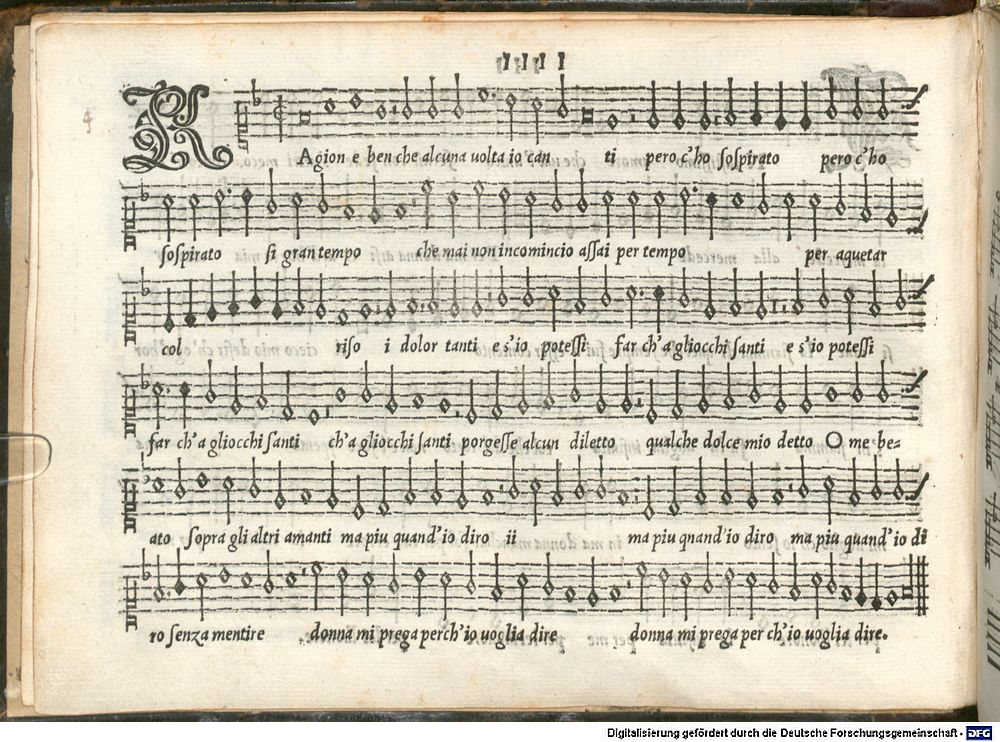 IIII
4
RAgion e ben che alcuna uolta io can ti pero c'ho sospirato pero c'ho
sospirato si gran tempo che mai non incomincio assai per tempo per aquetar
col riso i dolor tanti e s'io potessi far ch'a gliocchi santi e s'io potessi
far ch'a gliocchi santi ch'a gliocchi santi porgesse alcun diletto qualche dolce mio detto O me be=
ato sopra gli altri amanti ma piu quand'io diro ii ma piu qnand'io diro ma piu quand'io di
ro senza mentire donna mi prega perch'io uoglia dire donna mi prega per ch'io uoglia dire.
Digitalisierung gefördert durch die Deutsche Forschungsgemeinschaft - DFG